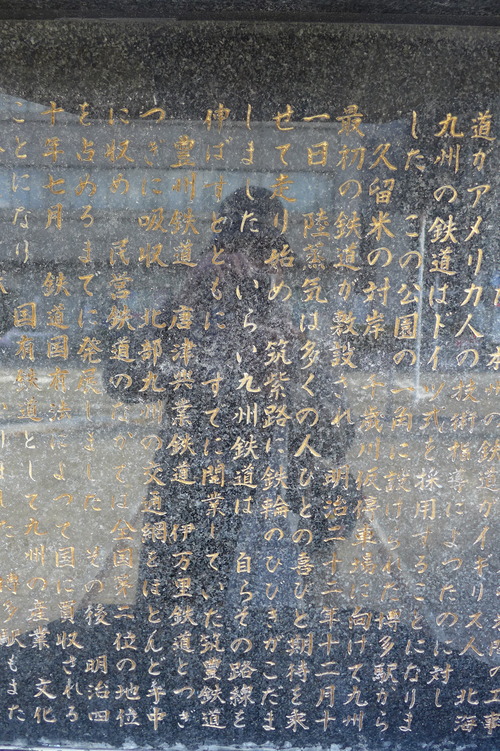 の工事
の鉄道がイギリス人 北海
道がアメリカ人の技術指導によつたのに対し
九州の鉄道はドイツ式を採用することになりま
した この公園の一角に設けられた博多駅から
久留米の対岸 千歳川仮停車場に向けて九州
最初の鉄道が敷設され 明治二十二年十二月十
一日 陸蒸気は多くの人びとの喜びと期待を乗
せて走り始め 筑紫路に鉄輪のひびきがこだま
しました いらい九州鉄道は 自らその路線を
伸ばすとともに すでに開業していた筑豊鉄道
豊州鉄道 唐津興業鉄道 伊万里鉄道とつぎ
つぎに吸収 北部九州の交通網をほとんど手中
に収め 民営鉄道のなかでは全国第二位の地位
を占めるまでに発展しました その後 明治四
十年七月 鉄道国有法によつて国に買収される
ことになり 国有鉄道として九州の産業 文化
博多駅もまた